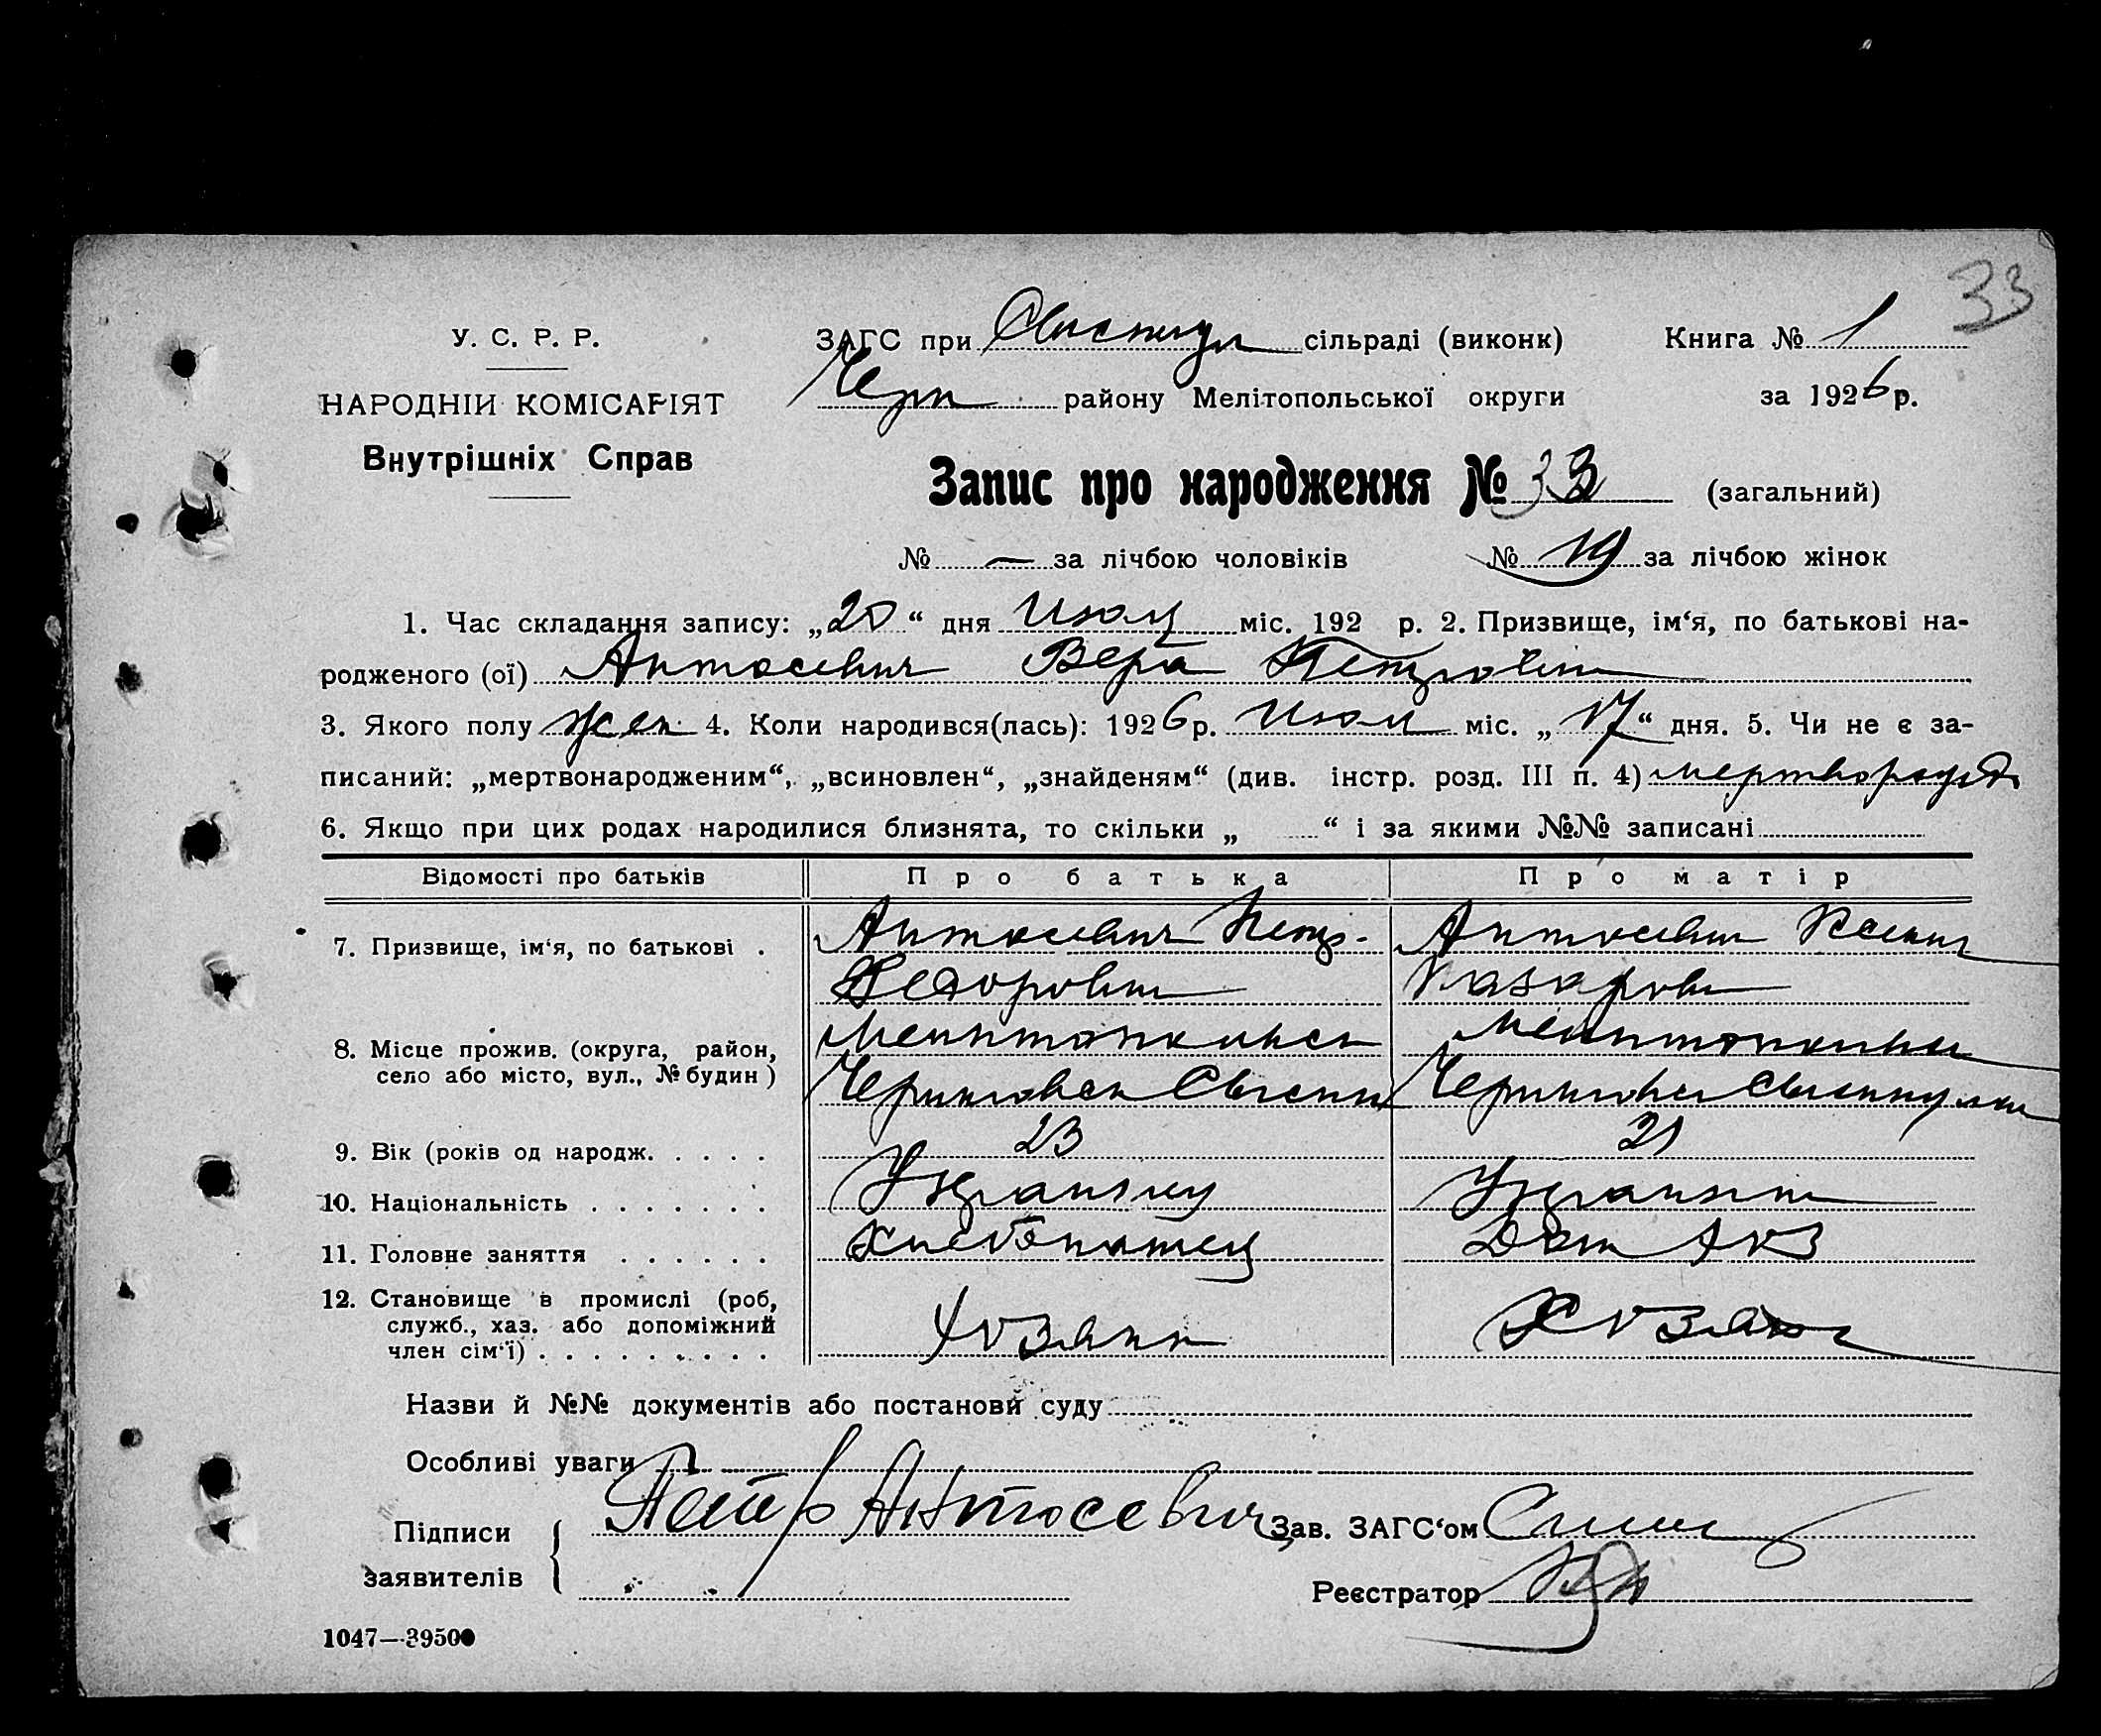 33
У. С. Р. Р.
НАРОДНІЙ КОМІСАРІЯТ
Внутрішніх Справ
ЗАГС при сільраді (виконк) Книга № 1
Черн району Мелітопольської округи за 1926 р.
Запис про народження № 33 (загальний)
№ — за лічбою чоловіків № 19 за лічбою жінок
1. Час складання запису: „20“ дня Июля міс. 192 р. 2. Призвище, ім‘я, по батькові на-
родженого (ої) Антосевич Вера Петровна
3. Якого полу жен. 4. Коли народився(лась): 1926 р. Июля міс. „17“ дня. 5. Чи не є за-
писаний: „мертвонародженим“, „всиновлен“, „знайденям“ (див. інстр. розд. III п. 4)
6. Якщо при цих родах народилися близнята, то скільки „ “ і за якими №№ записані
Відомості про батьків Про батька Про матір
7. Призвище, ім‘я, по батькові . Антосевич Петр Антосевич
Федорович
8. Місце прожив. (округа, район, Мелитопольск Мелитопольск
село або місто, вул., № будин ) Черниговск Черниговск
9. Вік (років од народж. . . . . 23 21
10. Національність . . . . . . . Украинец
11. Головне заняття . . . . . . Хлебопашец Дом
12. Становище в промислі (роб,
служб., хаз. або допоміжний Хозяин
член сім‘ї) . . . . . . . . .
Назви й №№ документів або постанови суду
Особливі уваги
Підписи Петр Антосевич Зав. ЗАГС‘ом
заявителів Реєстратор
1047—39500